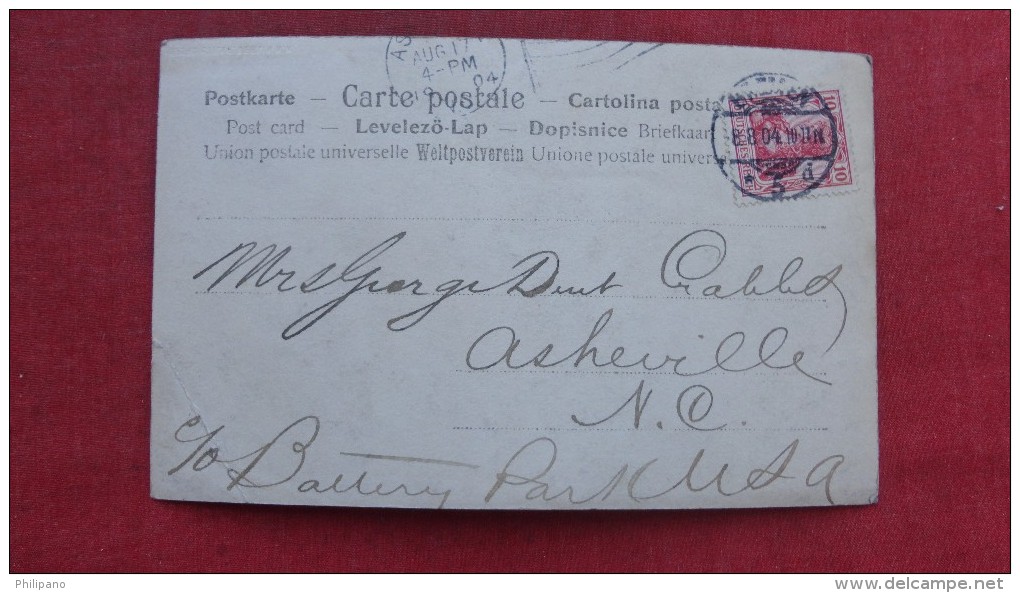 AUG 17
4-PM
04
Postkarte — Carte postale — Cartolina posta
Post card — Levelező-Lap — Dopisnice Briefkaart
Union postale universelle Weltpostverein Unione postale univers
10
10
8.8.04.10-11N
* 5 d
Mrs George Dent Crabbs
Asheville
N.C.
c/o Battery Park USA
Philipano
www.delcampe.net